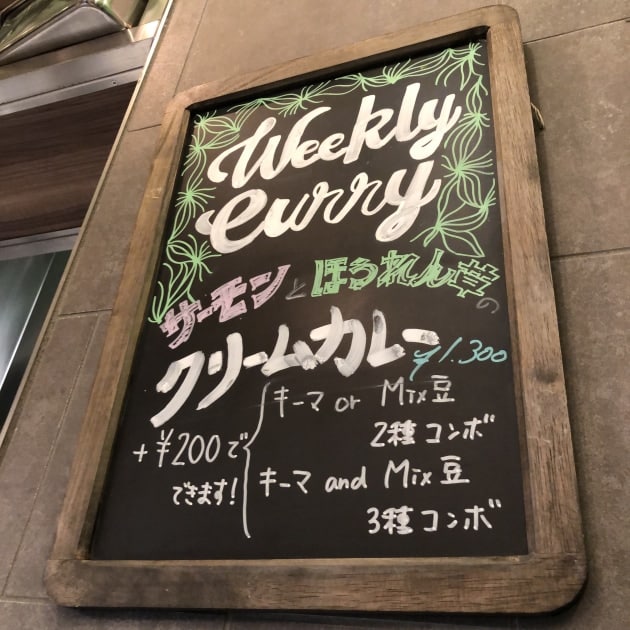 Weekly
Curry
サーモンとほうれん草の
クリームカレー ¥1.300
+¥200で
できます!
キーマ or Mix豆
2種コンボ
キーマ and Mix豆
3種コンボ